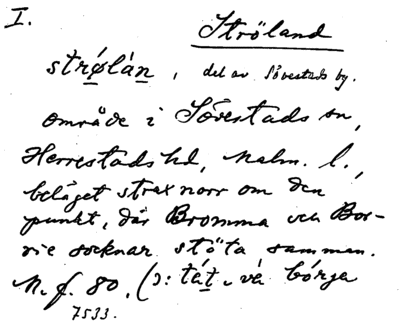 I.
Ströland
strǫ́lán̠, del av Sövestads by.
område i Sövestads sn,
Herrestads hd, Malm. l.,
beläget strax norr om den
punkt, där Bromma och Bor-
rie socknar stöta samman.
M. f. 80. (ɔ: tát̠ vá bórga
7533.